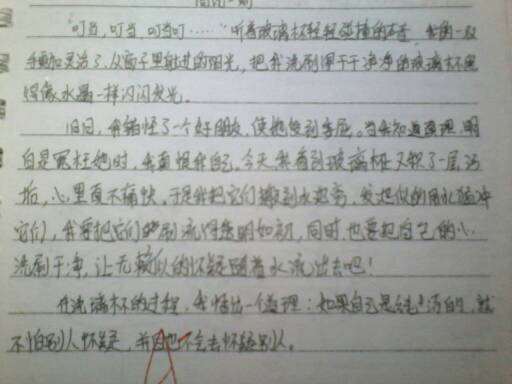 日记一则
“叮当，叮当，叮当叮……”听着玻璃杯轻轻碰撞的声音，我的一双
手更加灵活了，从窗子里射进的阳光，把我洗刷得干干净净的玻璃杯照
得像水晶一样闪闪发光。
旧日，我错怪了一个好朋友，使她受到委屈。当我知道道理，明
白是冤枉她时，我真恨我自己，今天我看到玻璃杯又积了一层污
垢，心里真不痛快，于是我把它们搬到水池旁，发疯似的用水猛冲
它们，我要把它们洗刷得透明如初，同时，也要把自己的心
洗刷干净，让无赖似的怀疑随着水流出去吧！
在洗玻杯的过程，我悟出一个道理：如果自己是纯洁的，就
不怕别人怀疑，并且也不会去怀疑别人。